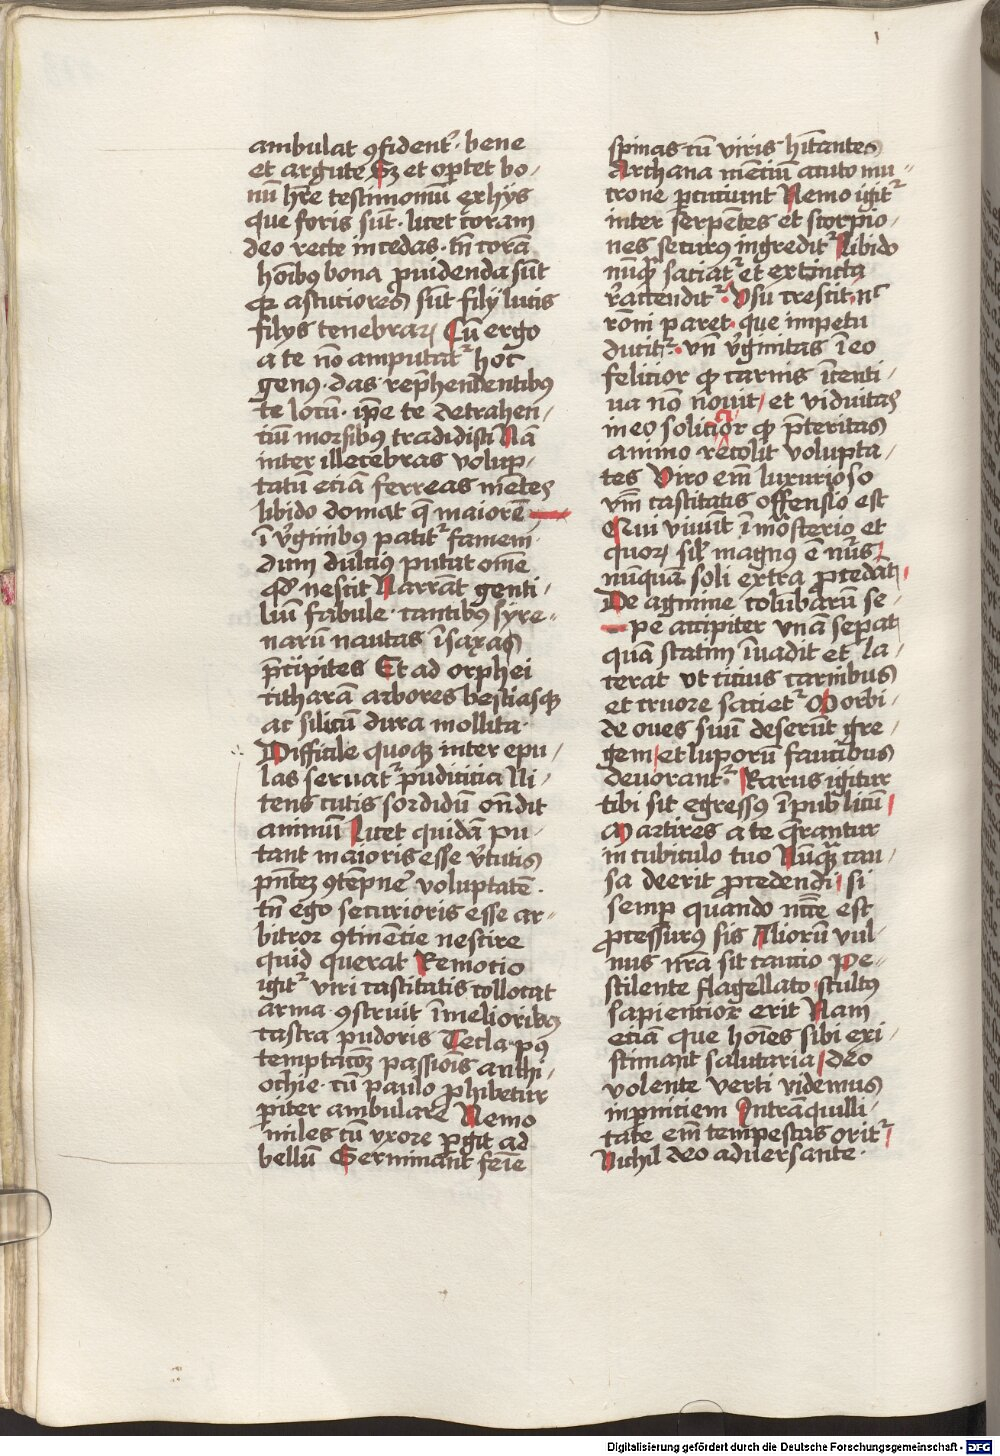 ambulat ꝯfident᷑. bene
et argute Sꝫ et oportet bo/
nū hr̄e testimoniū ex hijs
que foris sūt. licet coram
deo recte incedas. tn̄ corā
hōibꝰ bona p̱uidenda sūt
qꝛ astuciores sūt filij lucis
filijs tenebraꝝ Cū ergo
a te nō amputat᷑ hoc
genꝰ. das rep̄hendentibꝰ
te locū. ip̄e te detrahen/
ciū morsibꝰ tradidisti Nā
inter illecebras volup/
tatū eciā ferreas mētes
libido domat q̄ maiorē
ī v̓ginibꝰ patit᷑ famem
dum dulciꝰ putat om̄e
qd̓ nescit Narrāt genti/
liū fabule. cantibꝰ syre/
narū nautas ī saxa
p̄cipites Et ad orphei
citharā arbores bestiasqꝫ
ac silicū dura mollita.
Difficile quoqꝫ inter epu/
las seruat᷑ pudicicia Ni/
tens cutis sordidū on̄dit
animū Licet quidā pu/
tant maioris esse v̓tutis
pn̄tēꝫ ꝯtēpne᷑ voluptatē.
tn̄ ego securioris esse ar/
bitror ꝯtinencie nescire
quid querat Remocio
igit᷑ viri castitatis collocat
arma. ꝯstruit ī melioribꝰ
castra pudoris Tecla. pꝰ
temptacōꝫ passiois anthi/
ochie. cū paulo ꝓhibetur
pariter ambulare Nemo
miles cū vxore ꝑgit ad
bellū Germinant feīe
spinas cū viris hītantes
Archana mēciū acuto mu/
crone ꝑcuciunt Nemo igit᷑
inter serpētes et scorpio/
nes securus ingredit᷑ Libido
nūqꝫ saciat᷑ et extincta
r̓accendit᷑. Vsu crescit. nc̄
rōni paret. que impetu
ducit᷑. vn̄ v̓ginitas ī eo
felicior qꝛ carnis īcenti/
ua nō nouit/ et viduitas
in eo solicitior qꝛ p̄teritas
animo recolit volupta/
tes Viro em̄ luxurioso
vnū castitatis offensio est
Qui viuūt ī mōsterio et
quoꝝ sil̓ magnꝰ ē nūs.
nūquā soli extra ꝓcedāt
De agmine columbarū se/
pe accipiter vnā separat
quā statim īuadit et la/
cerat vt ciciꝰ carnibus
et cruore saciet᷑ Morbi/
de oues suū deserūt gre/
gem/ et luporū faucibus
deuorant᷑. Rarus igitur
tibi sit egressꝰ ī publicū
Martires a te q̄rantur
in cubiculo tuo Nūqꝫ cau/
sa deerit ꝓcedendi/ si
semꝑ quando ncc̄e est
ꝓcessurꝰ sis Aliorū vul/
nus nr̄a sit caucio Pe/
stilente flagellato stultꝰ
sapiencior erit Nam
eciā que hoīes sibi exi/
stimant salutaria/ deo
volente verti videmus
in ꝑniciem In tranquilli/
tate em̄ tempestas orit᷑/
Nichil deo aduersante.